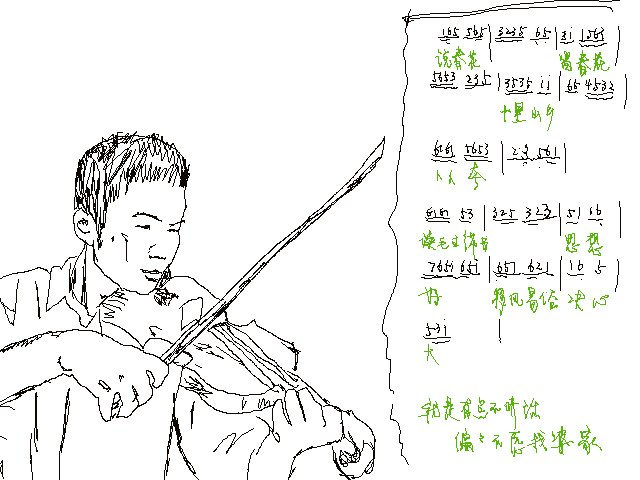 165 565 | 3235 65 | 3i 1565
说春花 留春花
5653 235 | 3535 ii | 65 4532
十里山乡
6161 5653 | 23 561 |
人人夸
6161 53 | 325 323 | 51 66
读毛主席书 思想
7651 651 | 651 621 | 16 5
好 移风易俗 决心
53i |
大
就是有点不听话
偏偏不愿找婆家